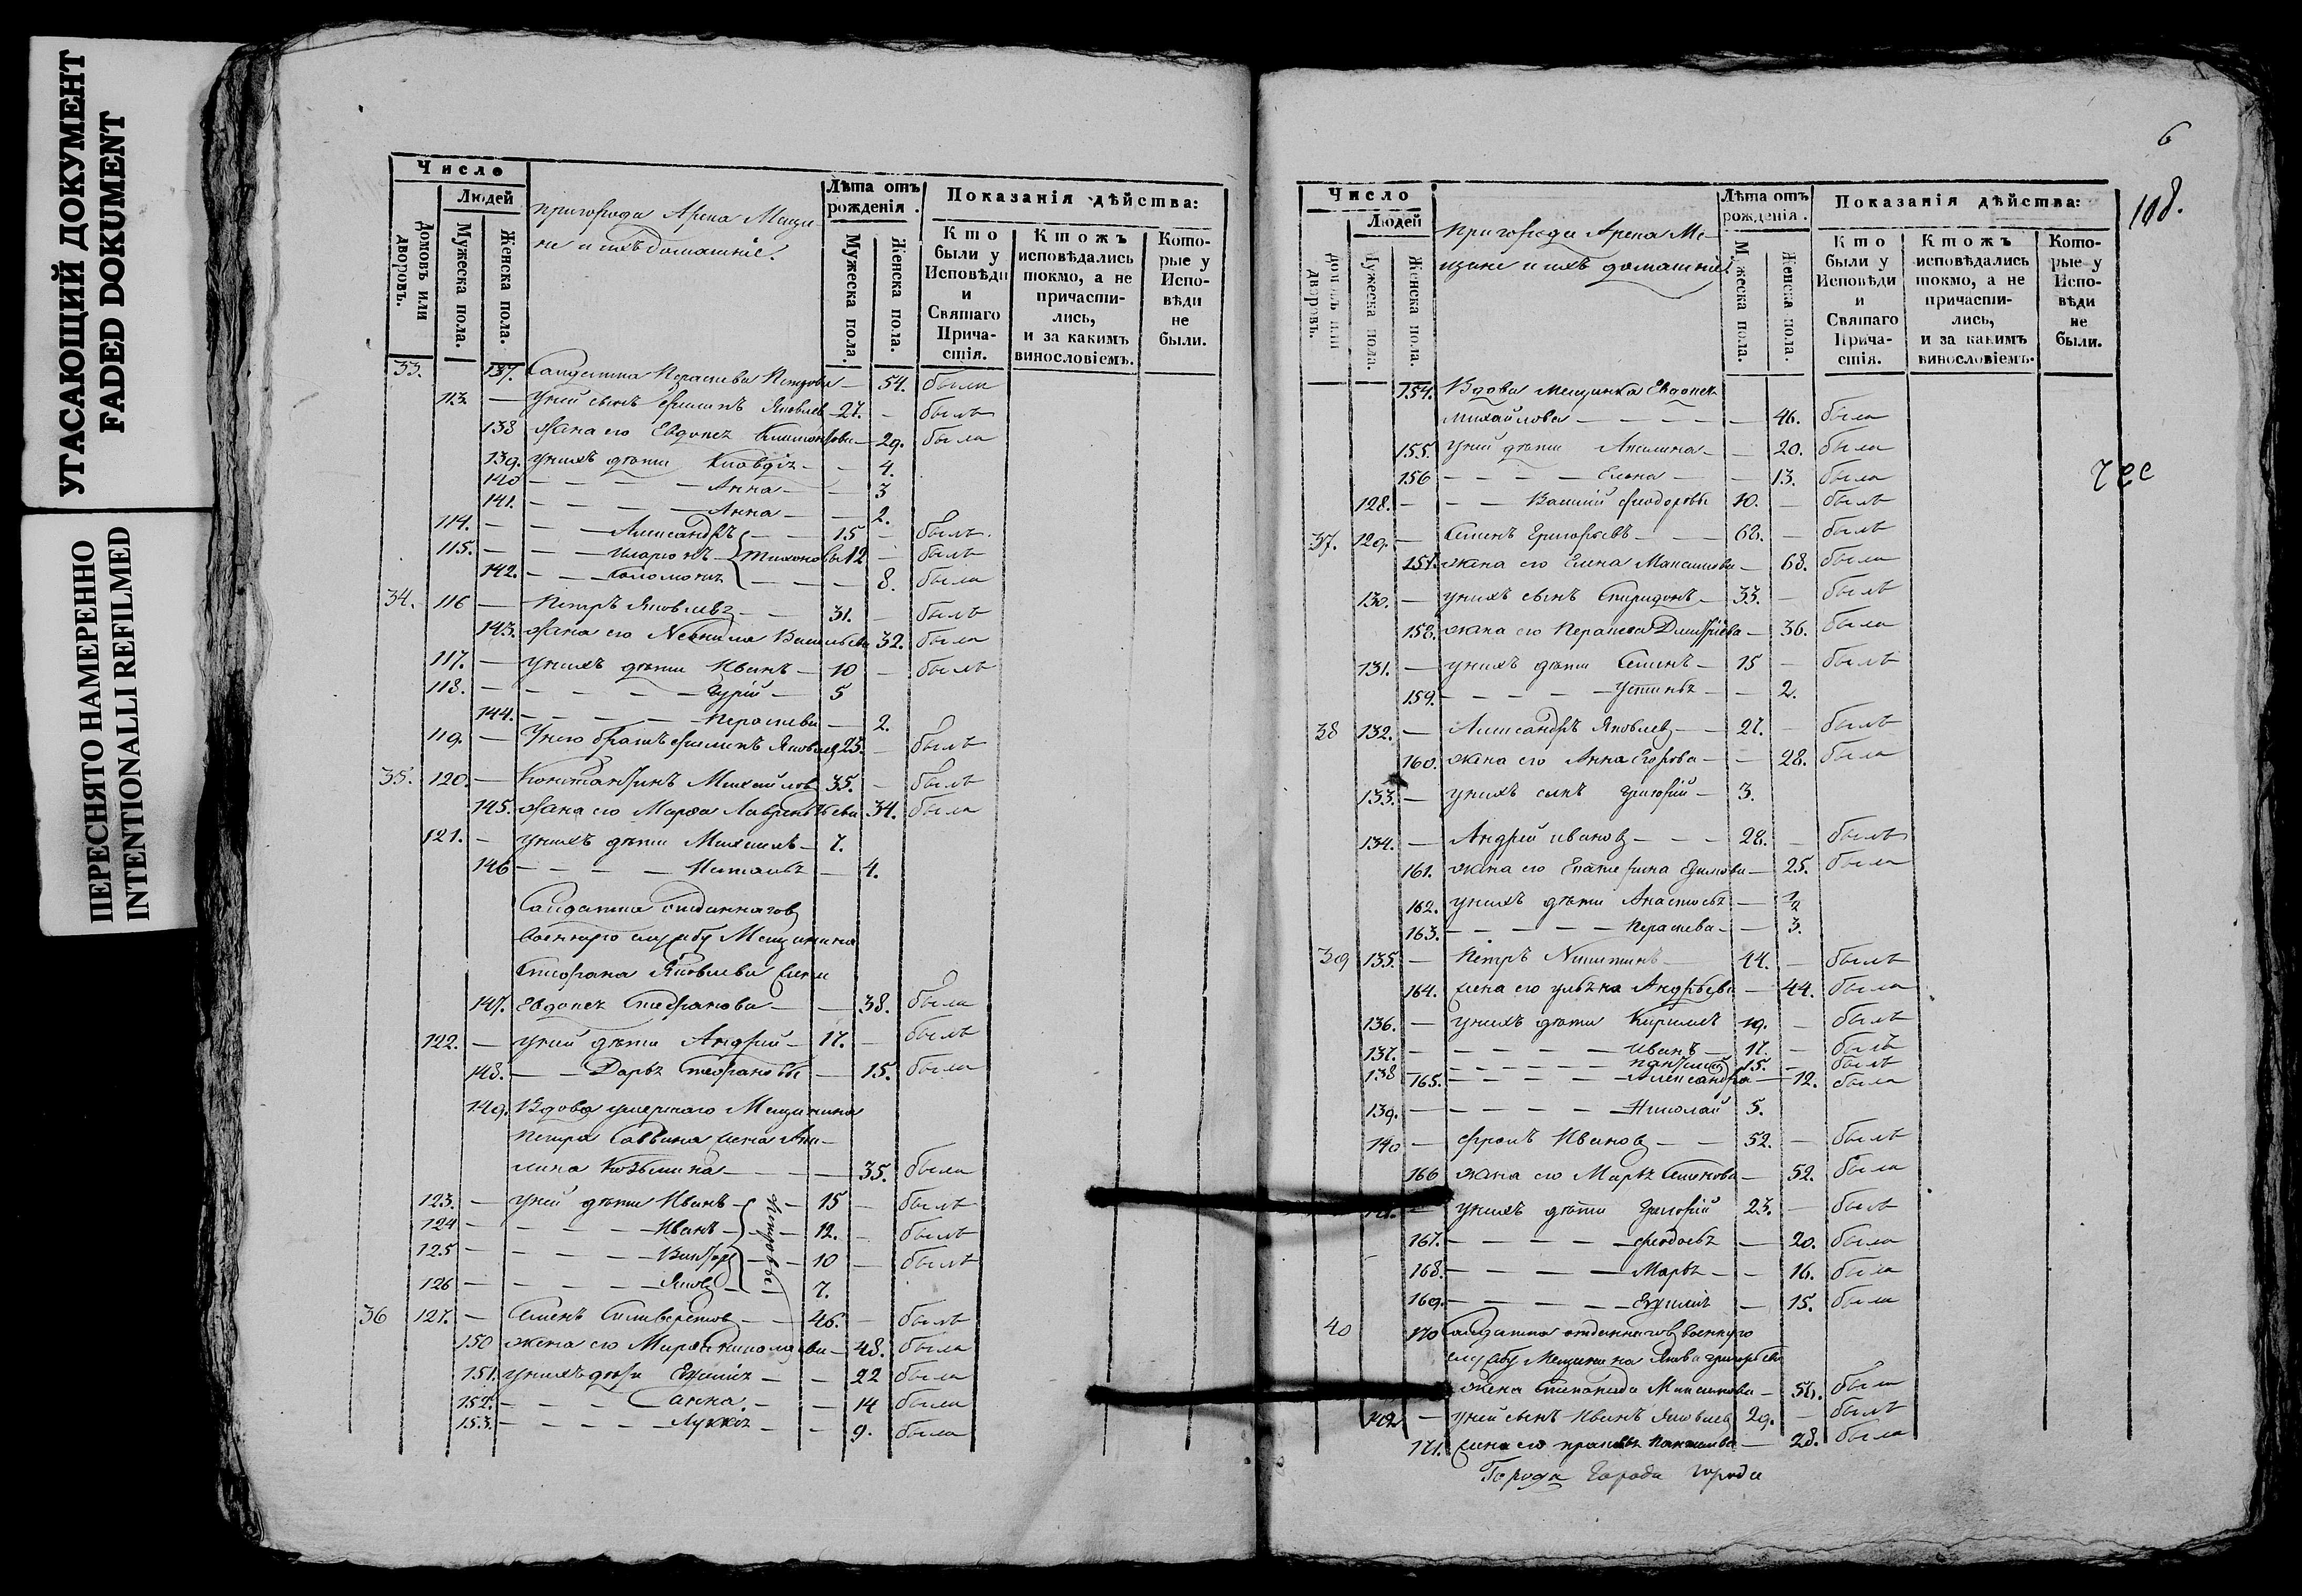 УГАСАЮЩИЙ ДОКУМЕНТ
FADED DOKUMENT
ПЕРЕСНЯТО НАМЕРЕННО
INTENTIONALLI REFILMED
Число
Людей
Домовъ или дворовъ.
Мужеска пола.
Женска пола.
пригорода Арска Меща-
не и ихъ домашніе.
Лѣта отъ рожденія.
Мужеска пола.
Женска пола.
Показанія дѣйства:
Кто были у Исповѣди и Святаго Прича-стія.
Ктожъ исповѣдались токмо, а не причасти-лись, и за какимъ винословіемъ.
Кото-рые у Испо-вѣди не были.
33. 137. Солдатка Параскева Петрова — 54. была
113. — У ней сынъ Филипъ Яковлев 27. — былъ
138 Жена его Евдокея — 29. была
139. У нихъ дѣти Клавдія — — 4.
140 — — — — Анна — — 3
141. — — — — Анна — — 2.
114. — — — Александръ — 15 — былъ
115. — — — Иларионъ Тихоновы 12 — былъ
142. — — — — — 8. была
34. 116 — Петръ Яковлевъ — — 31. — былъ
143. Жена его Васильева 32. была
117. — У нихъ дѣти Иванъ — 10 — былъ
118. — — — — Гурій — 5
144. — — — — Параскева — 2.
119. — У него братъ Филипъ Яковлев 23. — былъ
35. 120. — Константинъ Михайлов 35. — былъ
145. Жена его Марѳа 34. была
121. — У нихъ дѣти Михаилъ — 7.
146 — — — — Наталья — 4.
Солдатка отданнаго в
военную службу Мещанина
Стефана Яковлева жена
147. Евдокея Стефанова — — 38. была
122. — У ней дѣти Андрей — 17. — былъ
148. — — Дарья Стефановы — 15. была
149. Вдова умершаго Мещанина
Петра Саввина жена Аку-
лина Козьмина — — — 35. была
123. — У ней дѣти Иванъ — 15 — былъ
124 — — — — Иванъ — 12. — былъ
125 — — — — Викторъ — 10 — былъ
126 — — — — Яковъ — 7.
Петровы
36 127. — Семенъ Селиверстов — — 46. — былъ
150 Жена его Марѳа Николаева — 48. была
151. У нихъ дѣти Евфимія — — 22 была
152. — — — анна. — — 14 была
153. — — — — — 9. была
6
108.
Число
Людей
Домовъ или дворовъ.
Мужеска пола.
Женска пола.
пригорода Арска Ме-
щане и ихъ домашніе.
Лѣта отъ рожденія.
Мужеска пола.
Женска пола.
Показанія дѣйства:
Кто были у Исповѣди и Святаго Прича-стія.
Ктожъ исповѣдались токмо, а не причасти-лись, и за какимъ винословіемъ.
Кото-рые у Испо-вѣди не были.
154. Вдова Мещанка Евдокея
Михайлова — — — — 46. была
155. У ней дѣти Акилина — — 20. была
156 — — — — Елена — — 13. была
128. — — — Василій Феодоровы 10. — былъ
37. 129. — Семенъ Григорьевъ — — 68. — былъ
157. жена его Елена Максимова — 68. была
130. — у нихъ сынъ Спиридонъ — 33. — былъ
158. жена его Параскева Дмитріева — 36. была
131. — у нихъ дѣти Семенъ — 15 — былъ
159. — — — — Устинья — — 2.
38 132. — Александръ Яковлев — — 27. — былъ
160. жена его Анна Егорова — — 28. была
133. — у нихъ сынъ Григорій — 3.
134. — Андрей Иванов — — — 28. — былъ
161. жена его Екатерина Ефимова — 25. была
162. у нихъ дѣти Анастасья —
163. — — — — Параскева — — 3.
39 135. — Петръ Никитинъ — 44. — былъ
164. жена его Ульяна Андреева — 44. была
136. — у нихъ дѣти Кирилъ 19. — былъ
137. — — — — Иванъ — 17. — былъ
138 — — — — 15. — былъ
165. — — — — Александра — 12. была
139. — — — — Николай 5.
140 — Фролъ Иванов — — 52. — былъ
166 жена его Марья Семенова — 52. была
141. — у нихъ дѣти Григорій 23. — былъ
167. — — — — Федосья — 20. была
168. — — — — Марья — — 16. была
169. — — — — — 15. была
40 170 Солдатка отданнаго в военную
службу Мещанина Якова Григорьева
жена Степанида Максимова — 56. была
142 — у ней сынъ Иванъ Яковлев 29. — былъ
171. жена его — 28. была
Города Города города